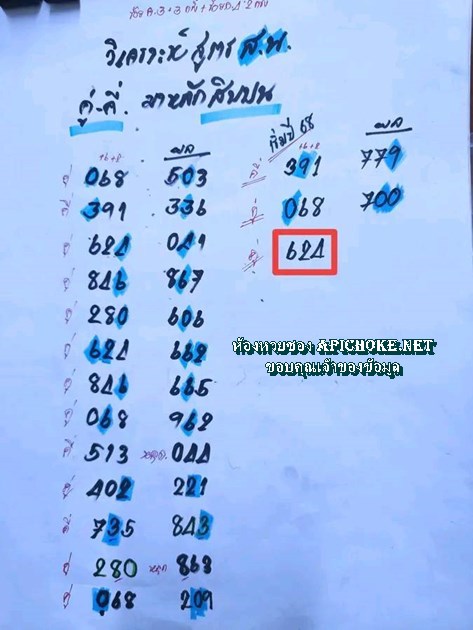 วิเคราะห์ สูตร ส.พ.
คู่-คี่. มาหลักสิบบน
ผล
คู่ 068 503
คี่ 391 336
คู่ 624 041
คู่ 846 867
คู่ 280 606
คู่ 624 662
คู่ 846 665
คู่ 068 962
คี่ 513 044
คู่ 402 221
คี่ 735 843
คู่ 280 หลุด 863
คู่ 068 209
เริ่มปี 68
ผล
คี่ 391 779
คู่ 068 700
คู่ 624
ห้องหวยซอง APICHOKE.NET
ขอบคุณเจ้าของข้อมูล